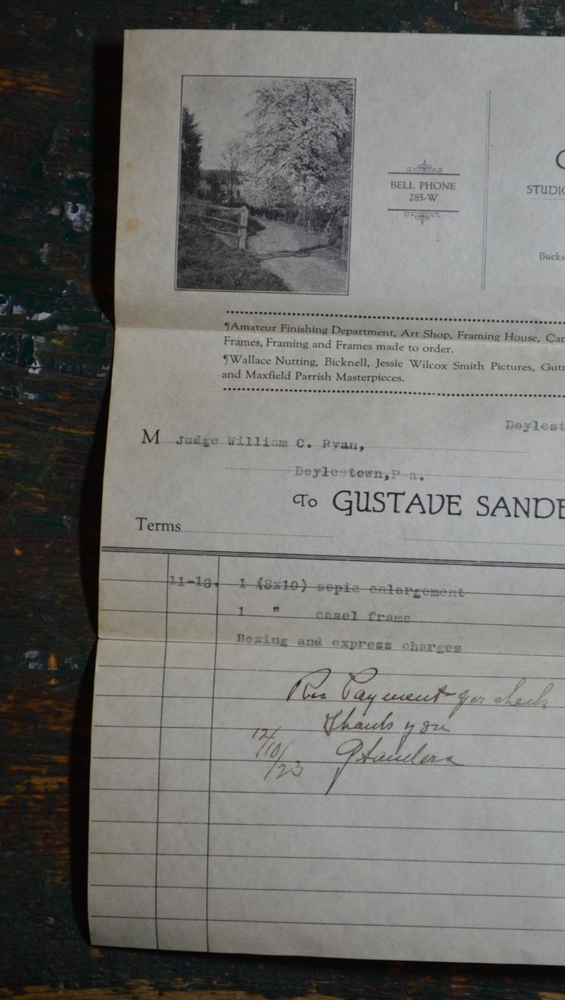 BELL PHONE
285-W
STUDIO
Bucks
¶Amateur Finishing Department, Art Shop, Framing House, Car
Frames, Framing and Frames made to order.
¶Wallace Nutting, Bicknell, Jessie Wilcox Smith Pictures, Gut
and Maxfield Parrish Masterpieces.
Doylest
M Judge William C. Ryan,
Doylestown,P a.
To GUSTAVE SANDE
Terms
11-13. 1 (8x10) sepia enlargement
1 " easel frame
Boxing and express charges
Rec Payment per check
Thank you
GSanders
12/10/23